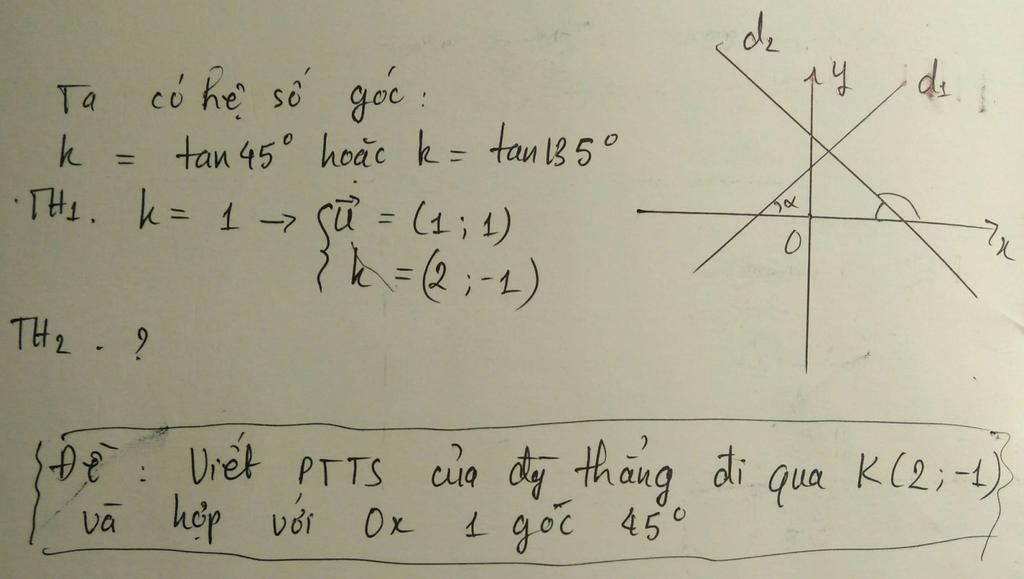 Ta có hệ số góc:
k = tan45° hoặc k = tan135°
TH1. k = 1 → { u⃗ = (1; 1)
k = (2; -1)
TH2. ?
d2
y
d1
α
O
x
Đề: Viết PTTS của đg̃ thẳng đi qua K(2; -1)
và hợp với Ox 1 góc 45°